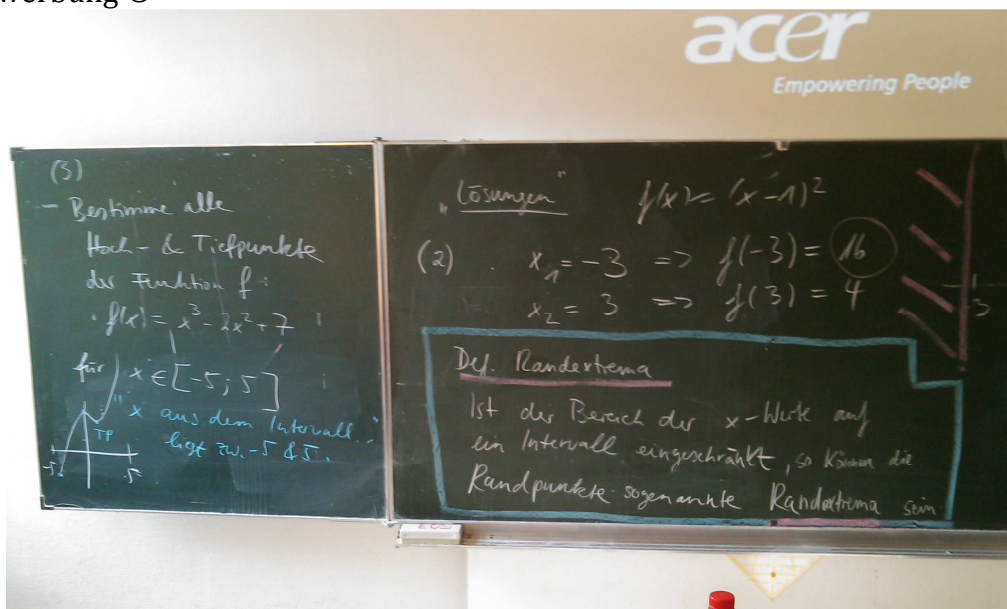 acer
Empowering People
(3)
- Bestimme alle
Hoch- & Tiefpunkte
der Funktion f:
f(x) = x³ - 2x² + 7
für x ∈ [-5; 5]
"x aus dem Intervall"
liegt zw. -5 & 5.
TP
-5
5
"Lösungen"
f(x) = (x-1)²
(2)
x₁ = -3 => f(-3) = 16
x₂ = 3 => f(3) = 4
3
Def. Randextrema
Ist der Bereich der x-Werte auf
ein Intervall eingeschränkt, so können die
Randpunkte sogenannte Randextrema sein